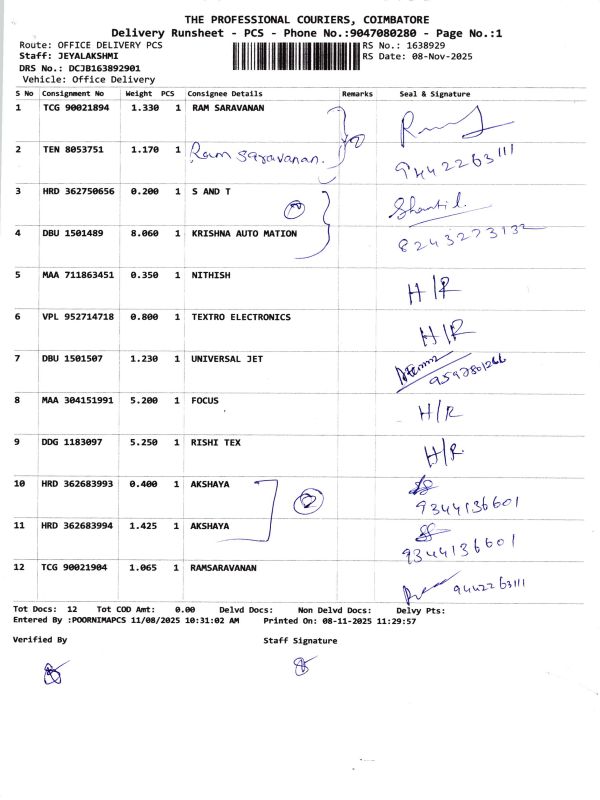 THE PROFESSIONAL COURIERS, COIMBATORE
Delivery Runsheet - PCS - Phone No.:9047080280 - Page No.:1
Route: OFFICE DELIVERY PCS RS No.: 1638929
Staff: JEYALAKSHMI RS Date: 08-Nov-2025
DRS No.: DCJB163892901
Vehicle: Office Delivery
S No Consignment No Weight PCS Consignee Details Remarks Seal & Signature
1 TCG 90021894 1.330 1 RAM SARAVANAN
2 TEN 8053751 1.170 1 Ram saravanan. 9442263111
3 HRD 362750656 0.200 1 S AND T
4 DBU 1501489 8.060 1 KRISHNA AUTO MATION 8243273132
5 MAA 711863451 0.350 1 NITHISH H/R
6 VPL 952714718 0.800 1 TEXTRO ELECTRONICS H/R
7 DBU 1501507 1.230 1 UNIVERSAL JET
8 MAA 304151991 5.200 1 FOCUS H/R
9 DDG 1183097 5.250 1 RISHI TEX H/R.
10 HRD 362683993 0.400 1 AKSHAYA 2 9344136601
11 HRD 362683994 1.425 1 AKSHAYA 9344136601
12 TCG 90021904 1.065 1 RAMSARAVANAN 9442263111
Tot Docs: 12 Tot COD Amt: 0.00 Delvd Docs: Non Delvd Docs: Delvy Pts:
Entered By :POORNIMAPCS 11/08/2025 10:31:02 AM Printed On: 08-11-2025 11:29:57
Verified By Staff Signature